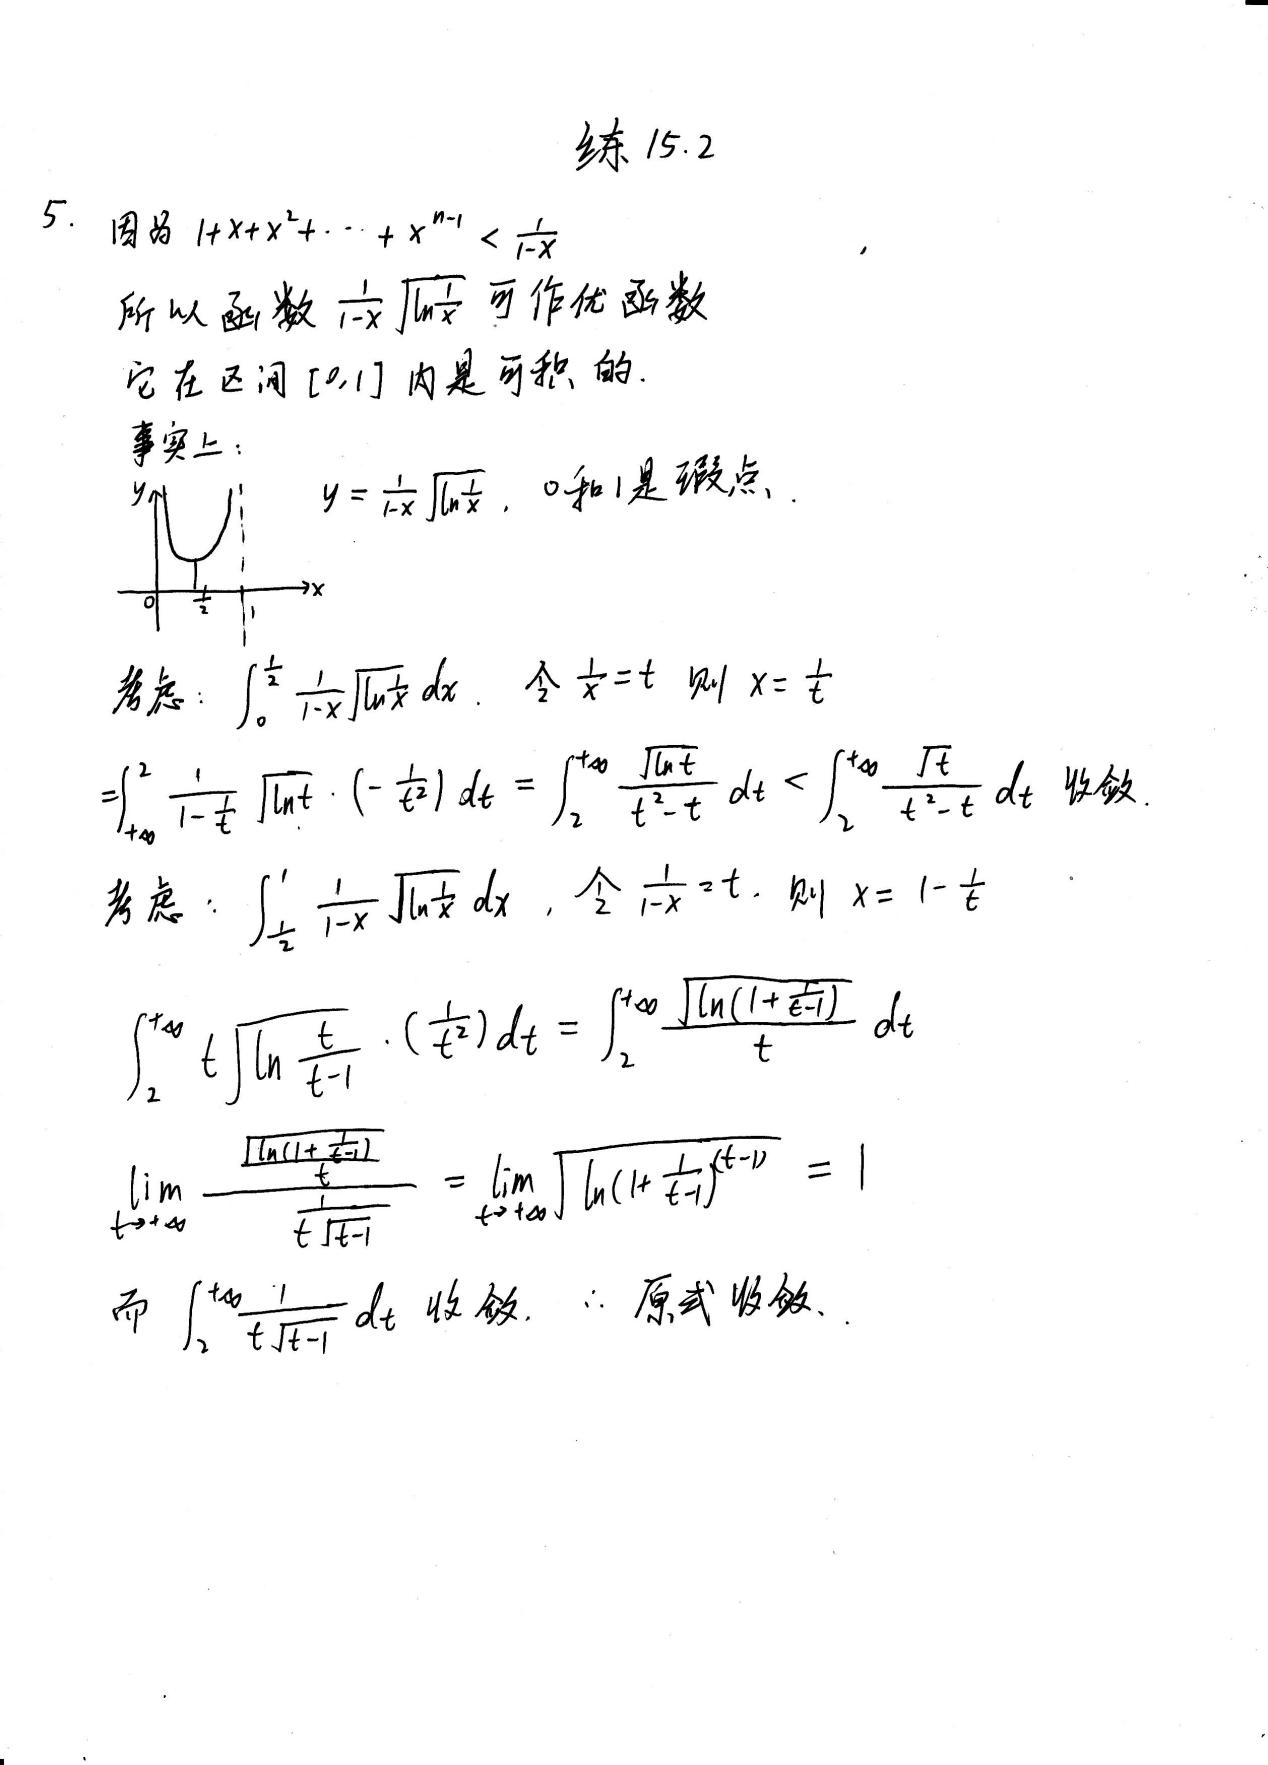 练 15.2
5. 因为 1+x+x²+···+xⁿ⁻¹ < \frac{1}{1-x}
所以函数 \frac{1}{1-x}\sqrt{\ln\frac{1}{x}} 可作优函数
它在区间[0,1]内是可积的.
事实上:
y = \frac{1}{1-x}\sqrt{\ln\frac{1}{x}}, 0和1是瑕点.
y
0 \frac{1}{2} 1 x
考虑: \int_{0}^{\frac{1}{2}} \frac{1}{1-x}\sqrt{\ln\frac{1}{x}} dx. 令 \frac{1}{x}=t 则 x=\frac{1}{t}
=\int_{+\infty}^{2} \frac{1}{1-\frac{1}{t}} \sqrt{\ln t}·(-\frac{1}{t^2}) dt = \int_{2}^{+\infty} \frac{\sqrt{\ln t}}{t^2-t} dt < \int_{2}^{+\infty} \frac{\sqrt{t}}{t^2-t} dt 收敛.
考虑: \int_{\frac{1}{2}}^{1} \frac{1}{1-x}\sqrt{\ln\frac{1}{x}} dx, 令 \frac{1}{1-x}=t. 则 x=1-\frac{1}{t}
\int_{2}^{+\infty} t\sqrt{\ln\frac{t}{t-1}}·(\frac{1}{t^2}) dt = \int_{2}^{+\infty} \frac{\sqrt{\ln(1+\frac{1}{t-1})}}{t} dt
\lim_{t→+\infty} \frac{\frac{\sqrt{\ln(1+\frac{1}{t-1})}}{t}}{\frac{1}{t\sqrt{t-1}}} = \lim_{t→+\infty} \sqrt{\ln(1+\frac{1}{t-1})^{(t-1)}} = 1
而 \int_{2}^{+\infty} \frac{1}{t\sqrt{t-1}} dt 收敛. ∴ 原式收敛.